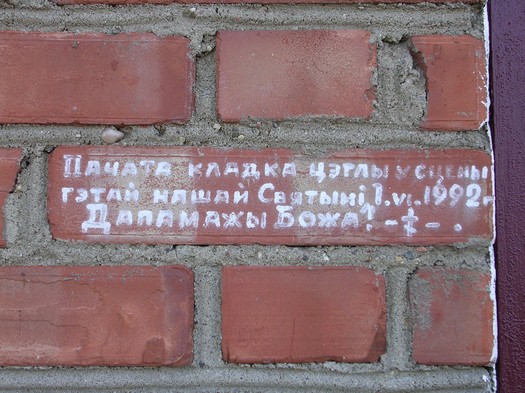 Пачата кладка цэглы у сцены
гэтай нашай Святыні 1.VI.1992г
Дапамажы Божа! -‡-.